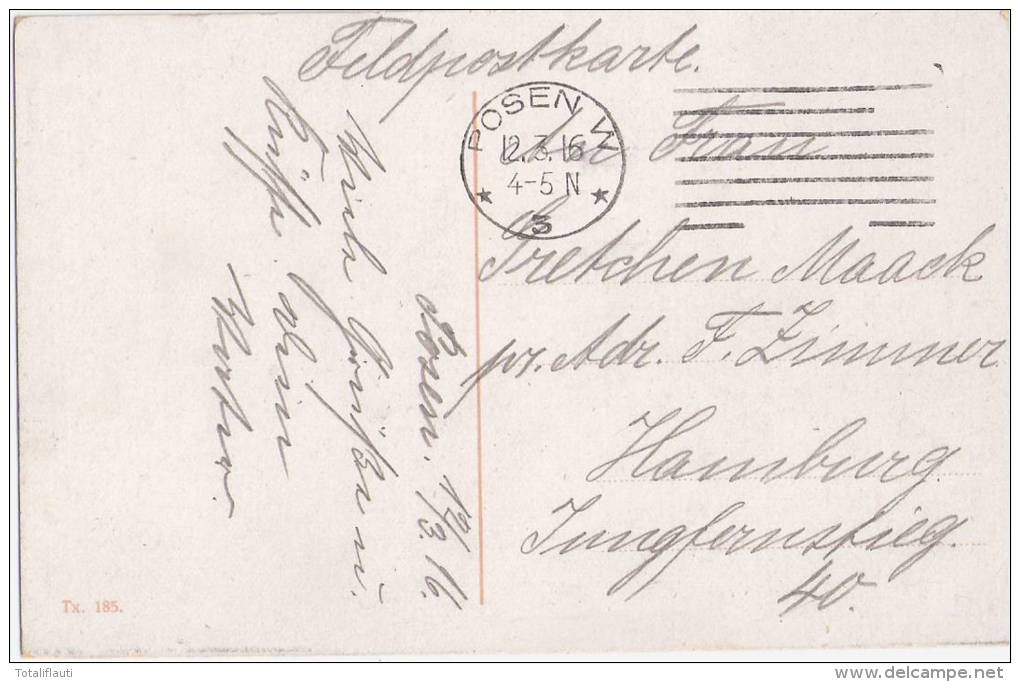 Feldpostkarte.
POSEN W
12.3.16
4-5 N
* 3 *
An Frau
Gretchen Maack
pr. Adr. F. Zimmer
Hamburg
Jungfernstieg.
40.
Posen, 12/3.16.
Viele Grüße u.
Küsse Dein
Tx. 185.
Totaliflauti
www.delcampe.net